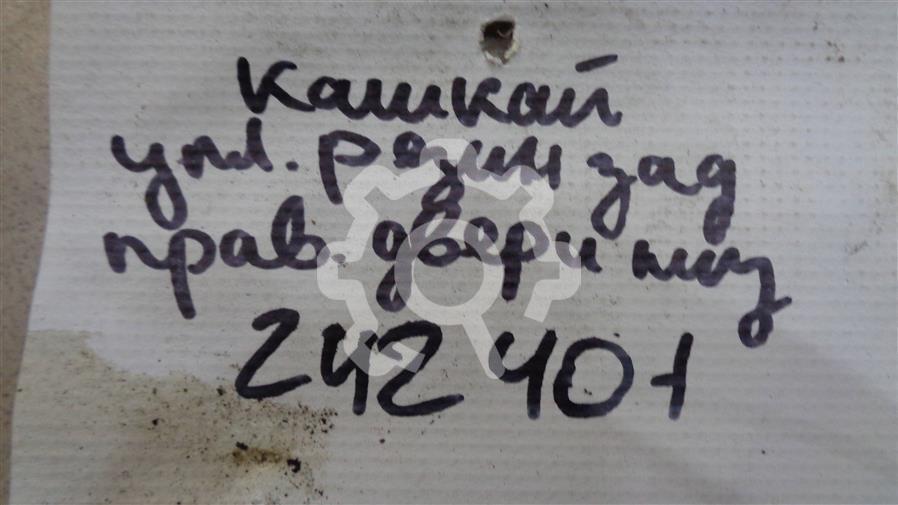 Кашкай
упл. резин зад
прав. двери низ
242401